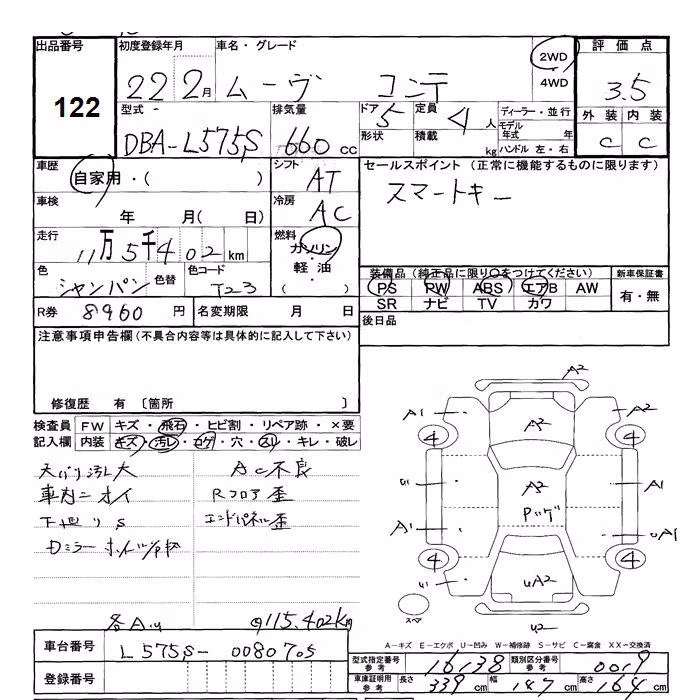 出品番号 初度登録年月 車名・グレード 2WD 評価点
122 22 2月 ムーヴ コンテ 4WD 3.5
型式 排気量 ドア 5 定員 4人 ディーラー・並行 外装 内装
DBA-L575S 660cc 形状 積載 kg モデル年式 年 C C
ハンドル 左・右
車歴 シフト セールスポイント (正常に機能するものに限ります)
自家用・( ) AT スマートキー
車検 冷房
年 月( 日) AC
走行 燃料
11万5千402km ガソリン
色 色替 色コード 軽油 装備品 (純正品に限り○をつけてください) 新車保証書
シャンパン T23 ( ) PS PW ABS エアB AW 有・無
SR ナビ TV カワ
R券 8960円 名変期限 月 日 後日品
注意事項申告欄(不具合内容等は具体的に記入して下さい)
修復歴 有 〔箇所 〕
検査員 FW キズ・飛石・ヒビ割・リペア跡・×要
記入欄 内装 キズ・汚レ・コゲ・穴・スレ・キレ・破レ
天バリ汚レ大 AC不良
車内ニオイ Rフロア歪
下廻りS エンドパネル歪
各AU @115.402km
A2
A1 A2 A2
4 4
A2 A1
A1 uA1
4 4
uA2
スペア u2
A-キズ E-エクボ U-凹み W-補修跡 S-サビ C-腐食 XX-交換済
車台番号 L575S-0080705
型式指定番号 参考 16138 類別区分番号 参考 0019
登録番号
車庫証明用 参考 長さ 339cm 幅 147cm 高さ 164cm